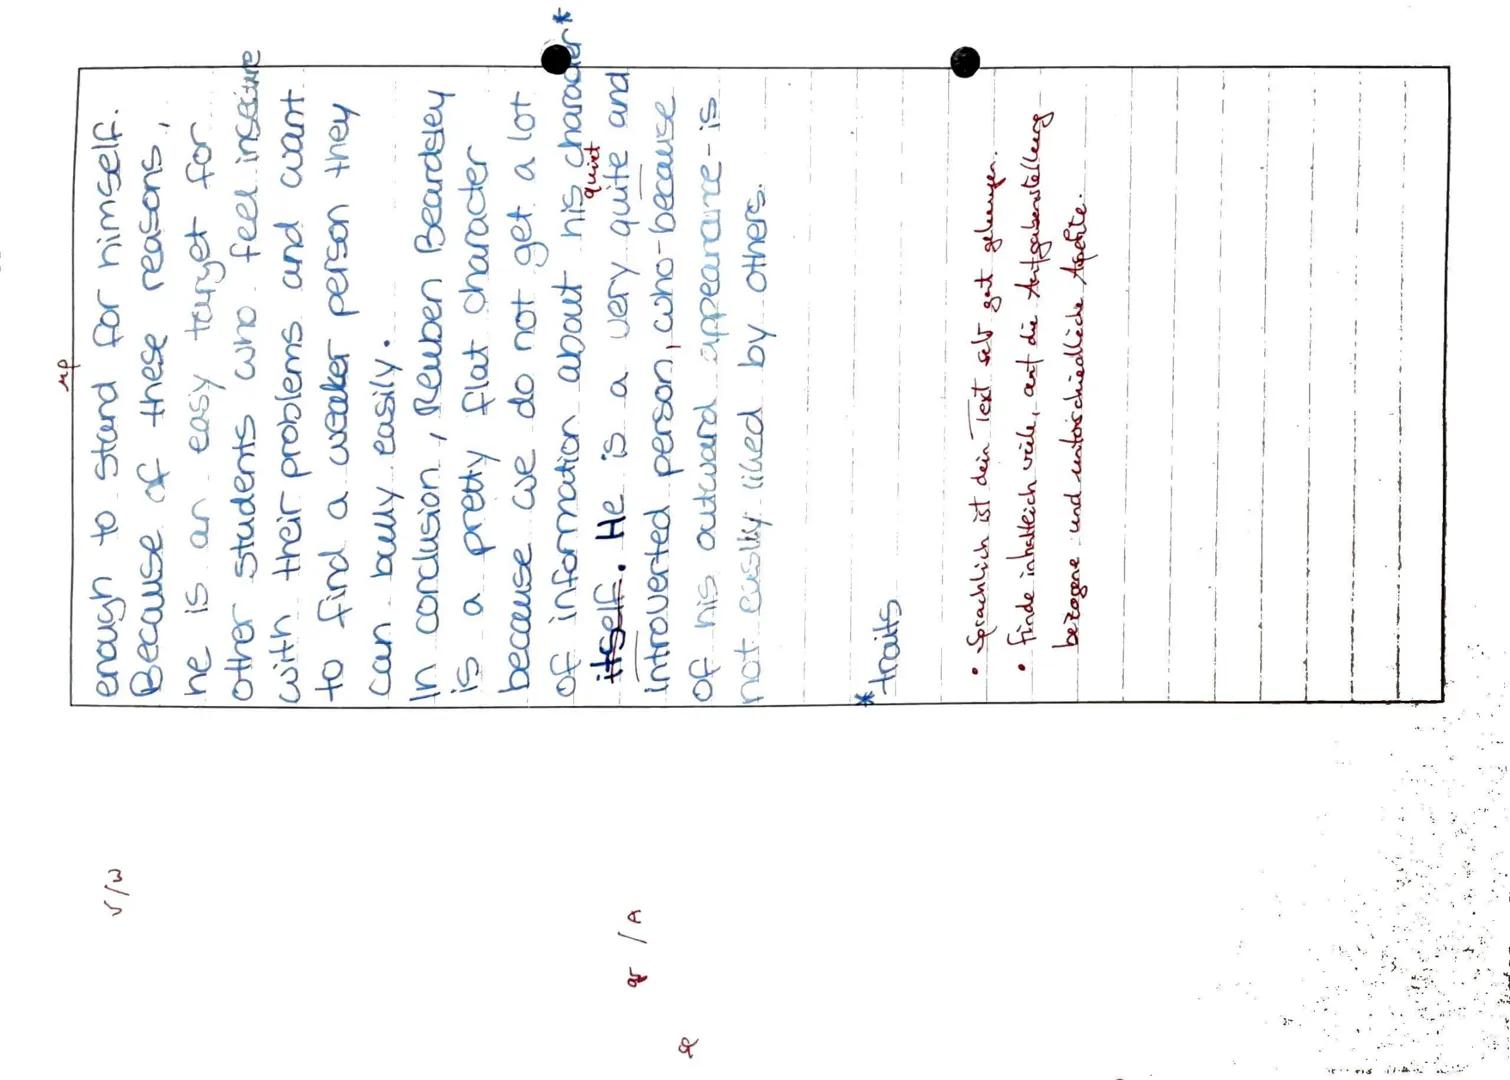 up
enough to stand for himself.
Because of these reasons,
he is an easy target for
other students who feel insecure
with their problems and want
to find a weaker person they
can bully easily.
In conclusion, Reuben Beardsley
is a pretty flat character
because we do not get a lot
of information about his character*
quiet
itself. He is a very quite and
introverted person, who-because
of his outward appearance-is
not easily liked by others.
*traits
• Sprachlich ist dein Text sehr gut gelungen.
• Finde inhaltlich viele, auf die Aufgabenstellung
bezogene und unterschiedliche Aspekte.